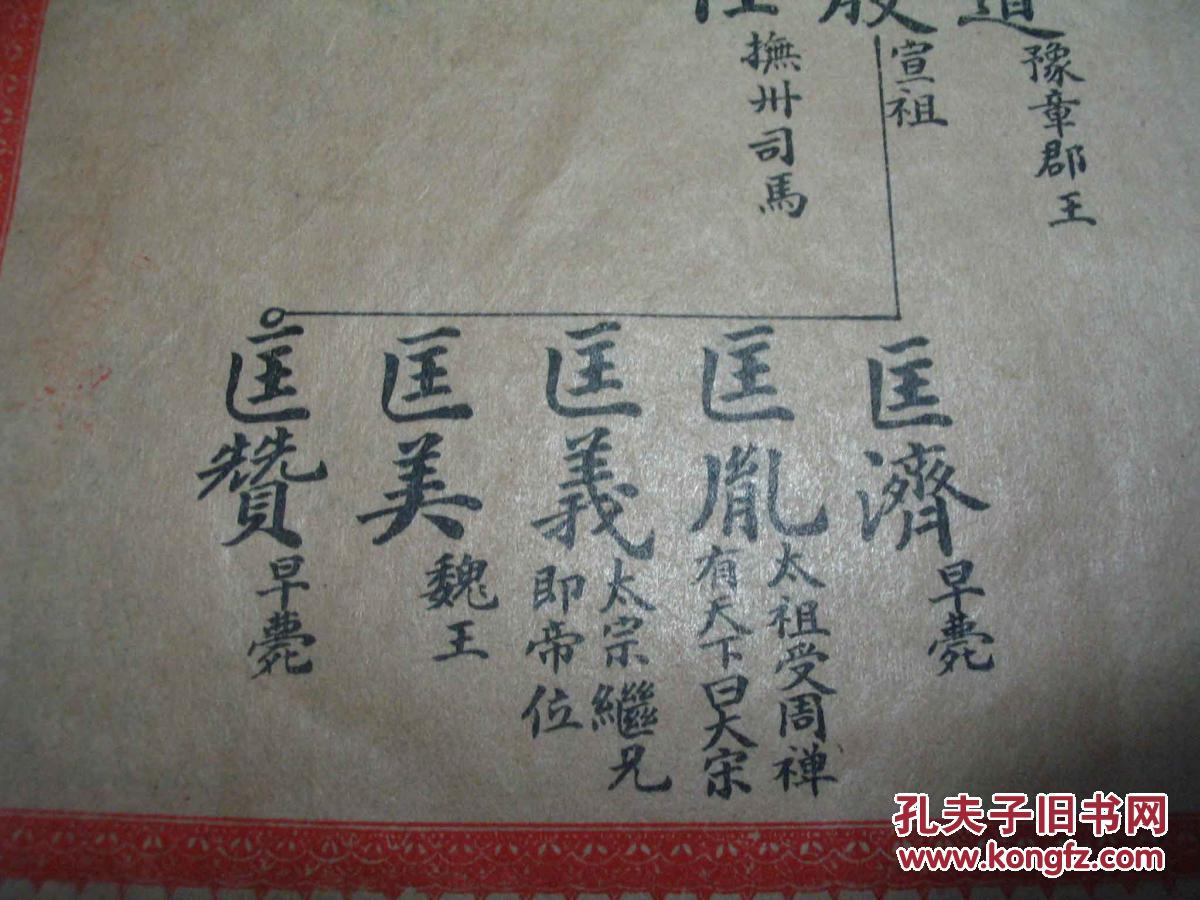 豫章郡王
宣祖
撫州司馬
匡濟 早薨
匡胤 太祖受周禅
有天下曰大宋
匡義 太宗繼兄
即帝位
匡美 魏王
匡贊 早薨
孔夫子旧书网
www.kongfz.com